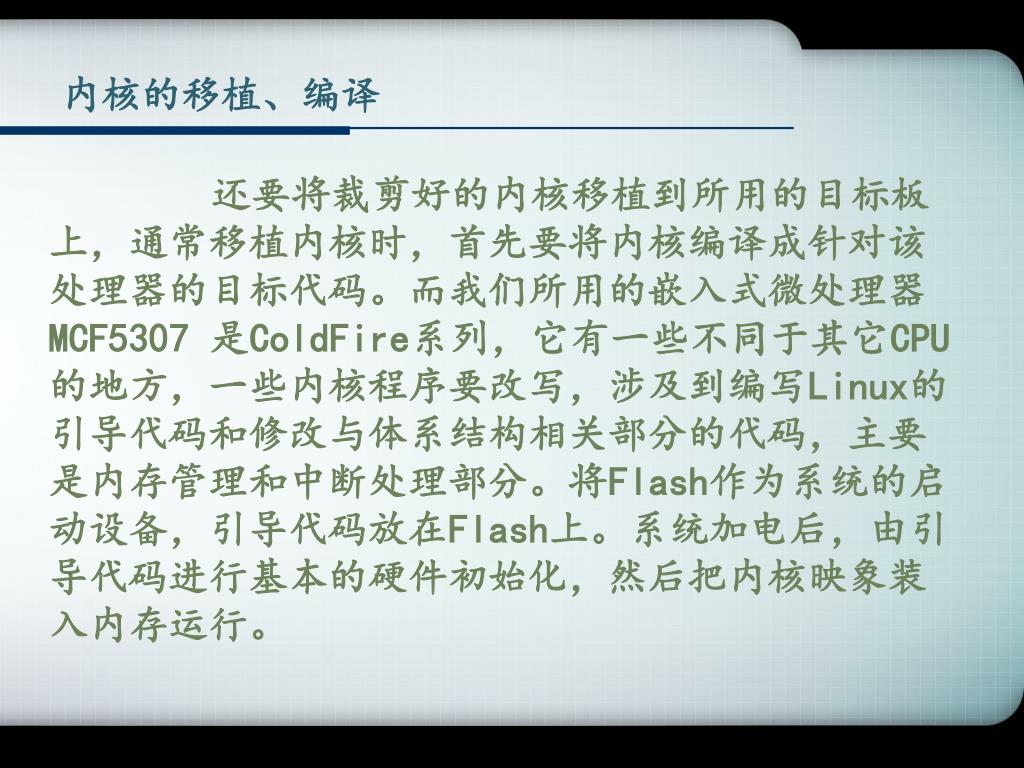 内核的移植、编译
还要将裁剪好的内核移植到所用的目标板
上，通常移植内核时，首先要将内核编译成针对该
处理器的目标代码。而我们所用的嵌入式微处理器
MCF5307 是ColdFire系列，它有一些不同于其它CPU
的地方，一些内核程序要改写，涉及到编写Linux的
引导代码和修改与体系结构相关部分的代码，主要
是内存管理和中断处理部分。将Flash作为系统的启
动设备，引导代码放在Flash上。系统加电后，由引
导代码进行基本的硬件初始化，然后把内核映象装
入内存运行。